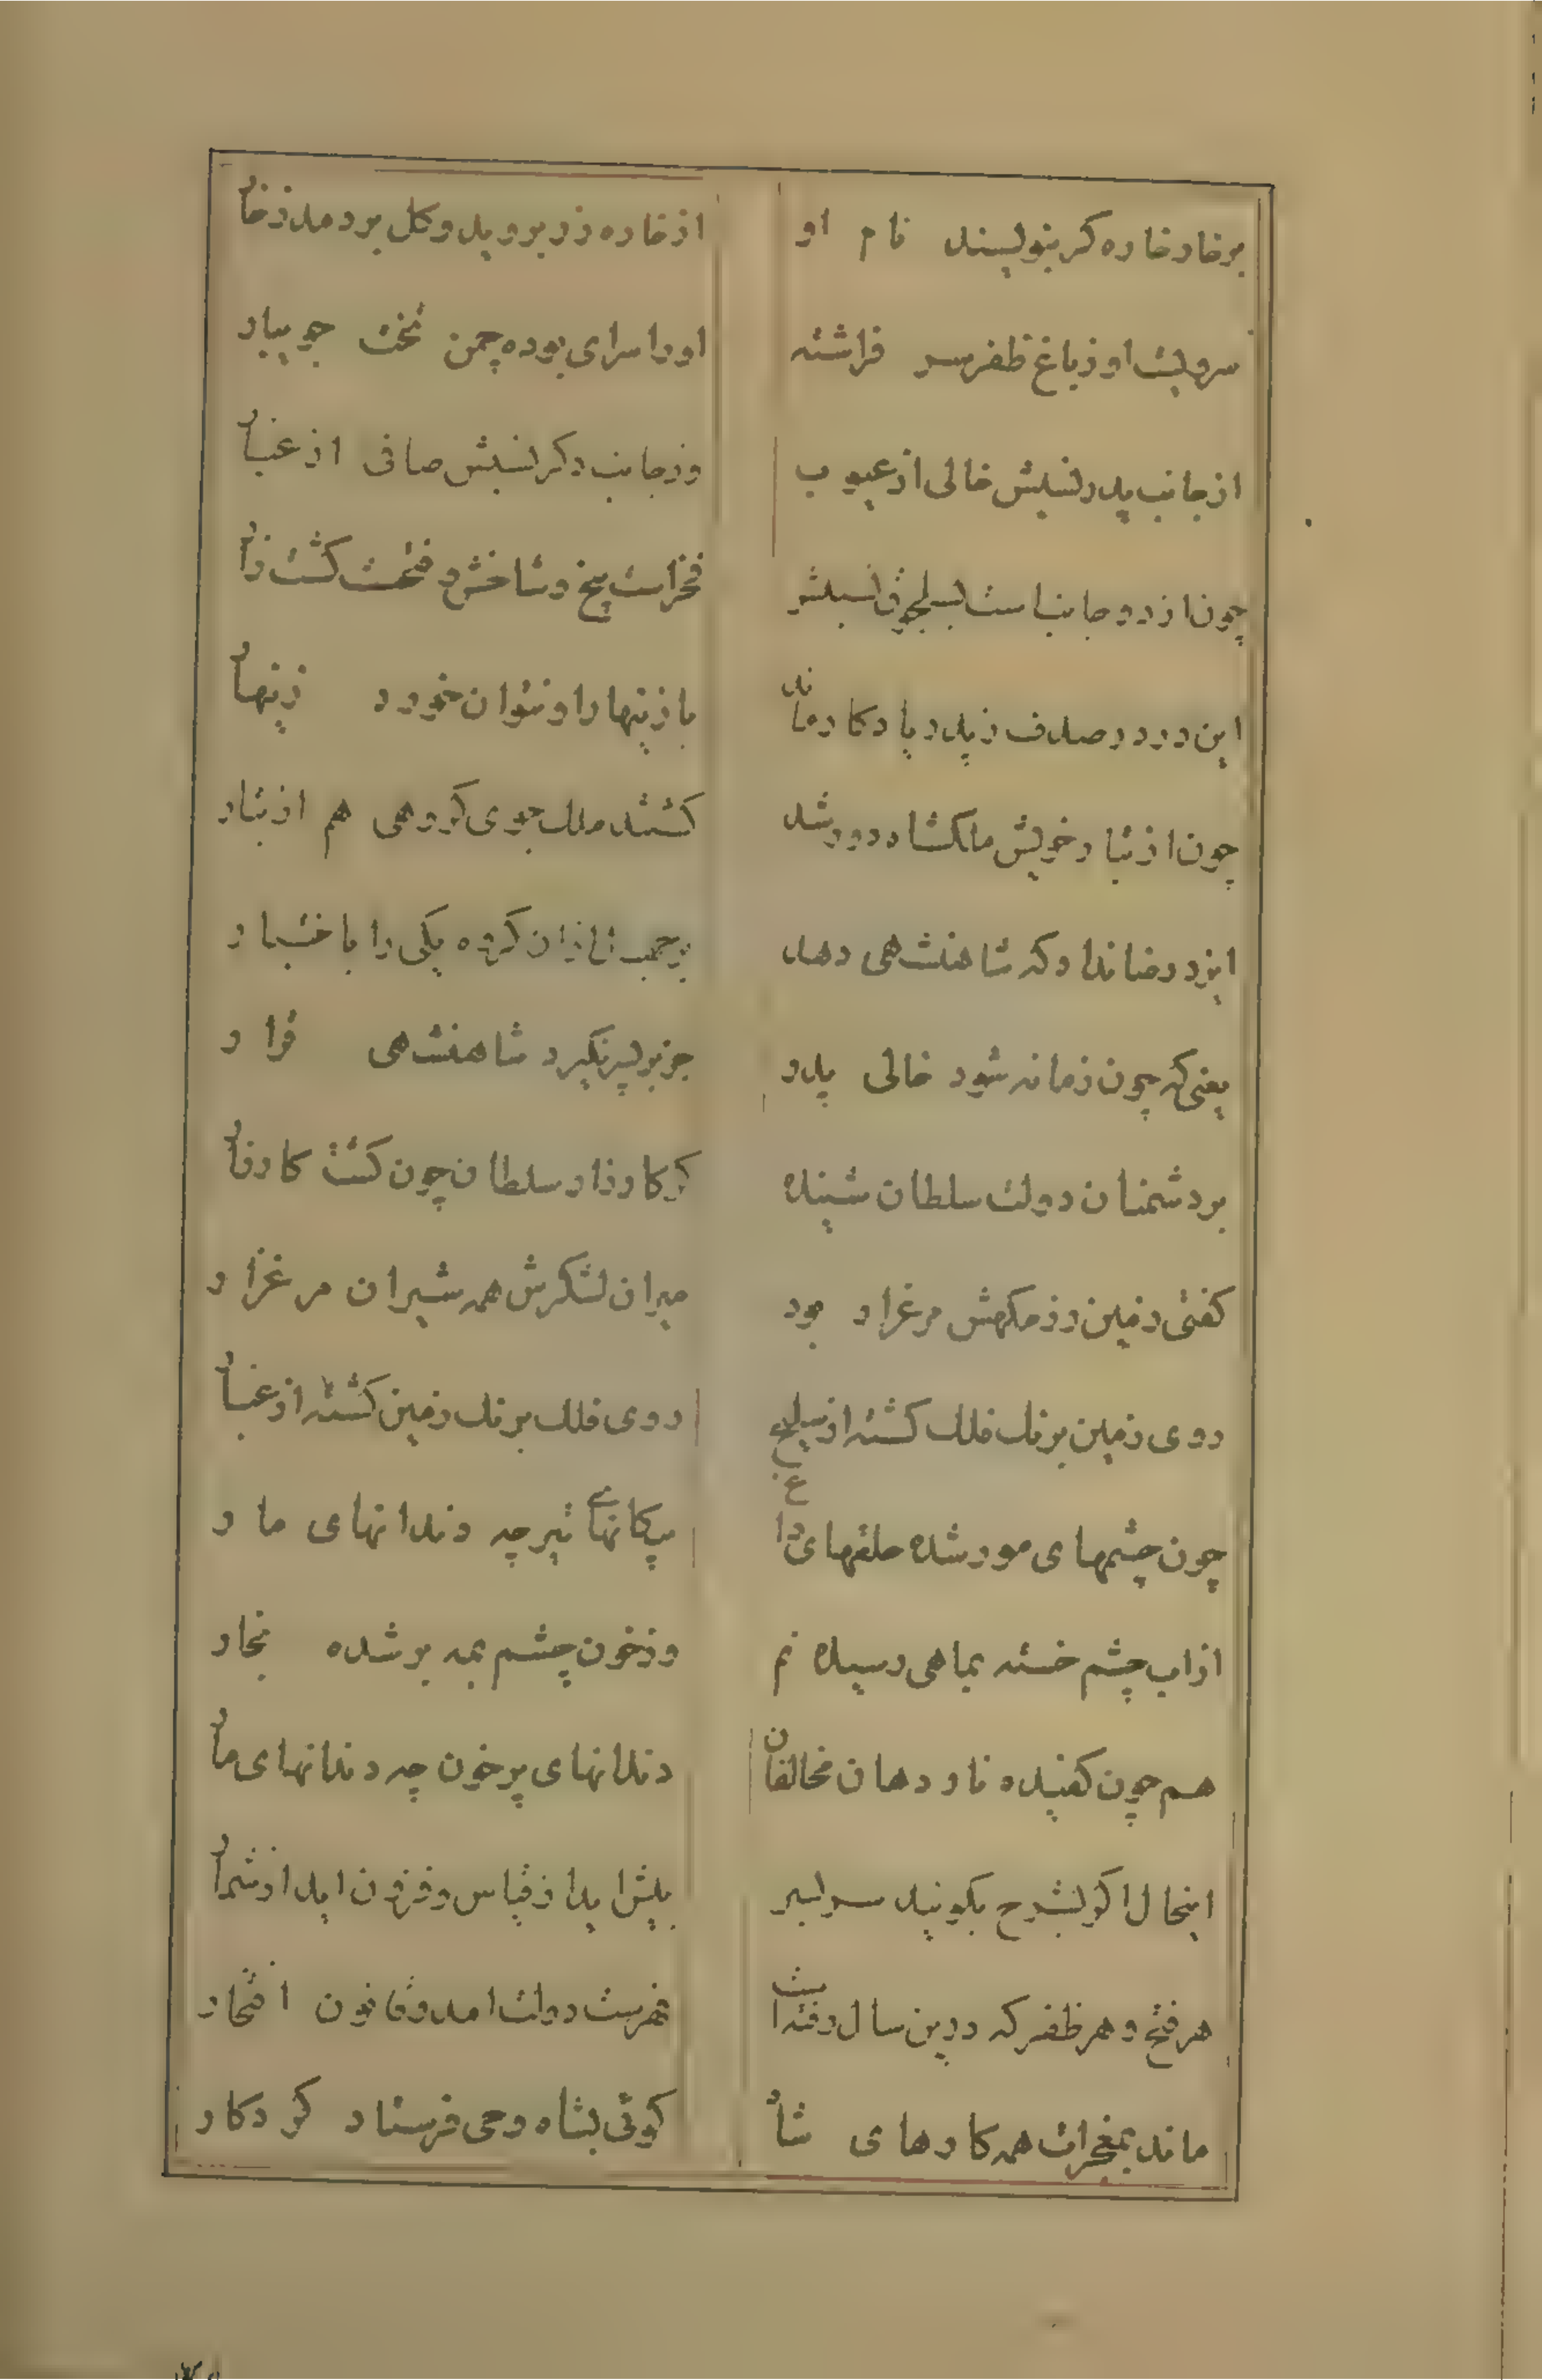 بر خار خاره کر بنویسند نام او از خاره زر بروید و کل بردمد ز خار
سرویست او ز باغ ظفر سر فراشته او را سرای بوده چمن تخت جویبار
از جانب پدر نسبش خالی از عیوب وز جانب دکر نسبش صافی از غبار
چون از دو جانب است بسلجوق نسبتش فخر است بیخ و شاخش و فتحست کشت زار
این در در صدف ز پدر یادکار ماند با زینهار او نتوان خورد زینهار
چون از تبار خویش ملکشاه دور شد کشتند ملک جوی کروهی هم از تبار
ایزد رضا نداد که شاهنشهی دهد بر جب از ان کروه یکی را باختیار
یعنی که چون زمانه شود خالی پدر جز بر پسر نکیرد شاهنشهی قرار
بر دشمنان دولت سلطان شنیده کز کارزار سلطان چون کشت کار زار
کفتی زمین رزمکهش مرغزار بود میران لشکرش همه شیران مرغزار
روی زمین برنک فلک کشته از سلیح روی فلک برنک زمین کشته از غبار
چون چشمهای مور شده حلقهای درع پیکانهای تیر چه دندانهای مار
از اب چشم خسته بماهی رسیده نم وز خون چشم بمه بر شده بخار
هم چون کفیده نار دهان مخالفان دندانهای پر خون چه دندانهای مار
اینحال اکر بشرح بکویند سر بسر بیش اید از قیاس و فزون اید از شمار
هر فتح و هر ظفر که درین سال رفته است فهرست دولت امد و قانون افتخار
ماند بمعجزات همه کارهای شاه کوئی بشاه وحی فرستاد کردکار